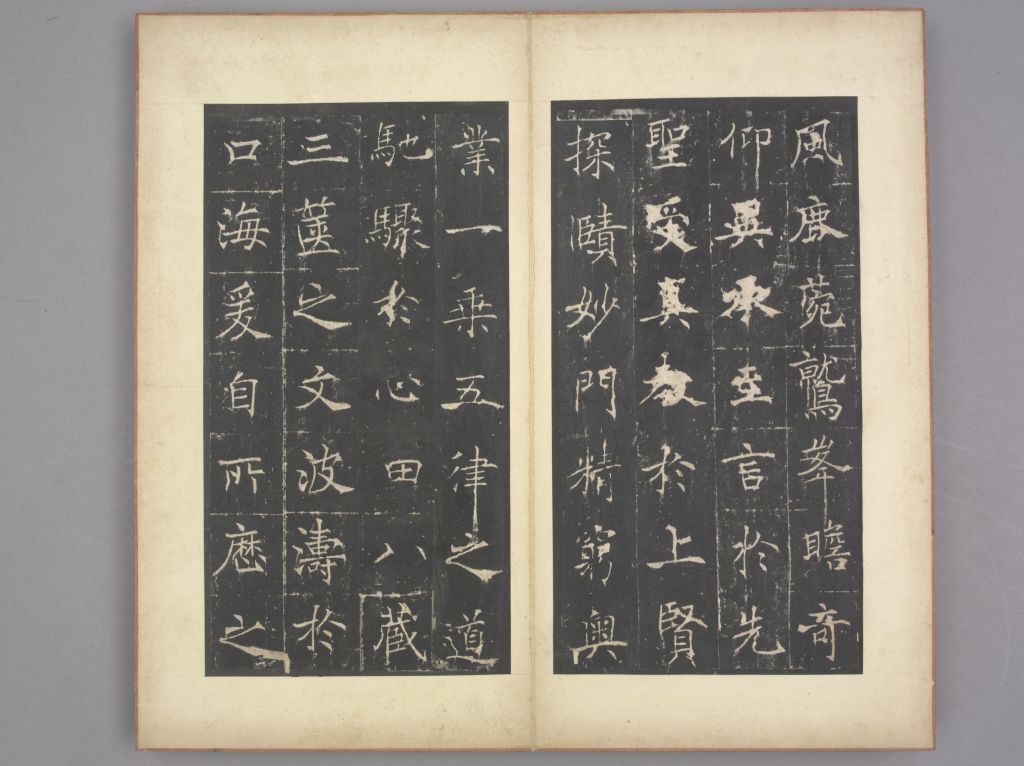 風鹿菀鷲峯瞻奇
仰異承至言於先
聖受真教於上賢
探賾妙門精窮奧
業一乗五律之道
馳驟於心田八蔵
三篋之文波濤於
口海爰自所歴之